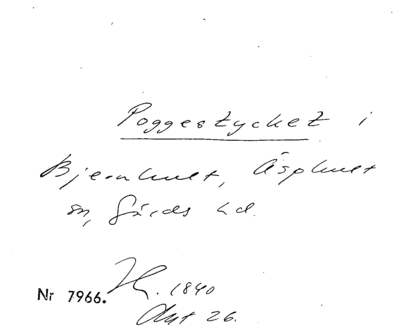 Poggestycket i
Bjernhult, Äsphult
sn, Gärds hd.
Nr 7966. 1840
Okt 26.